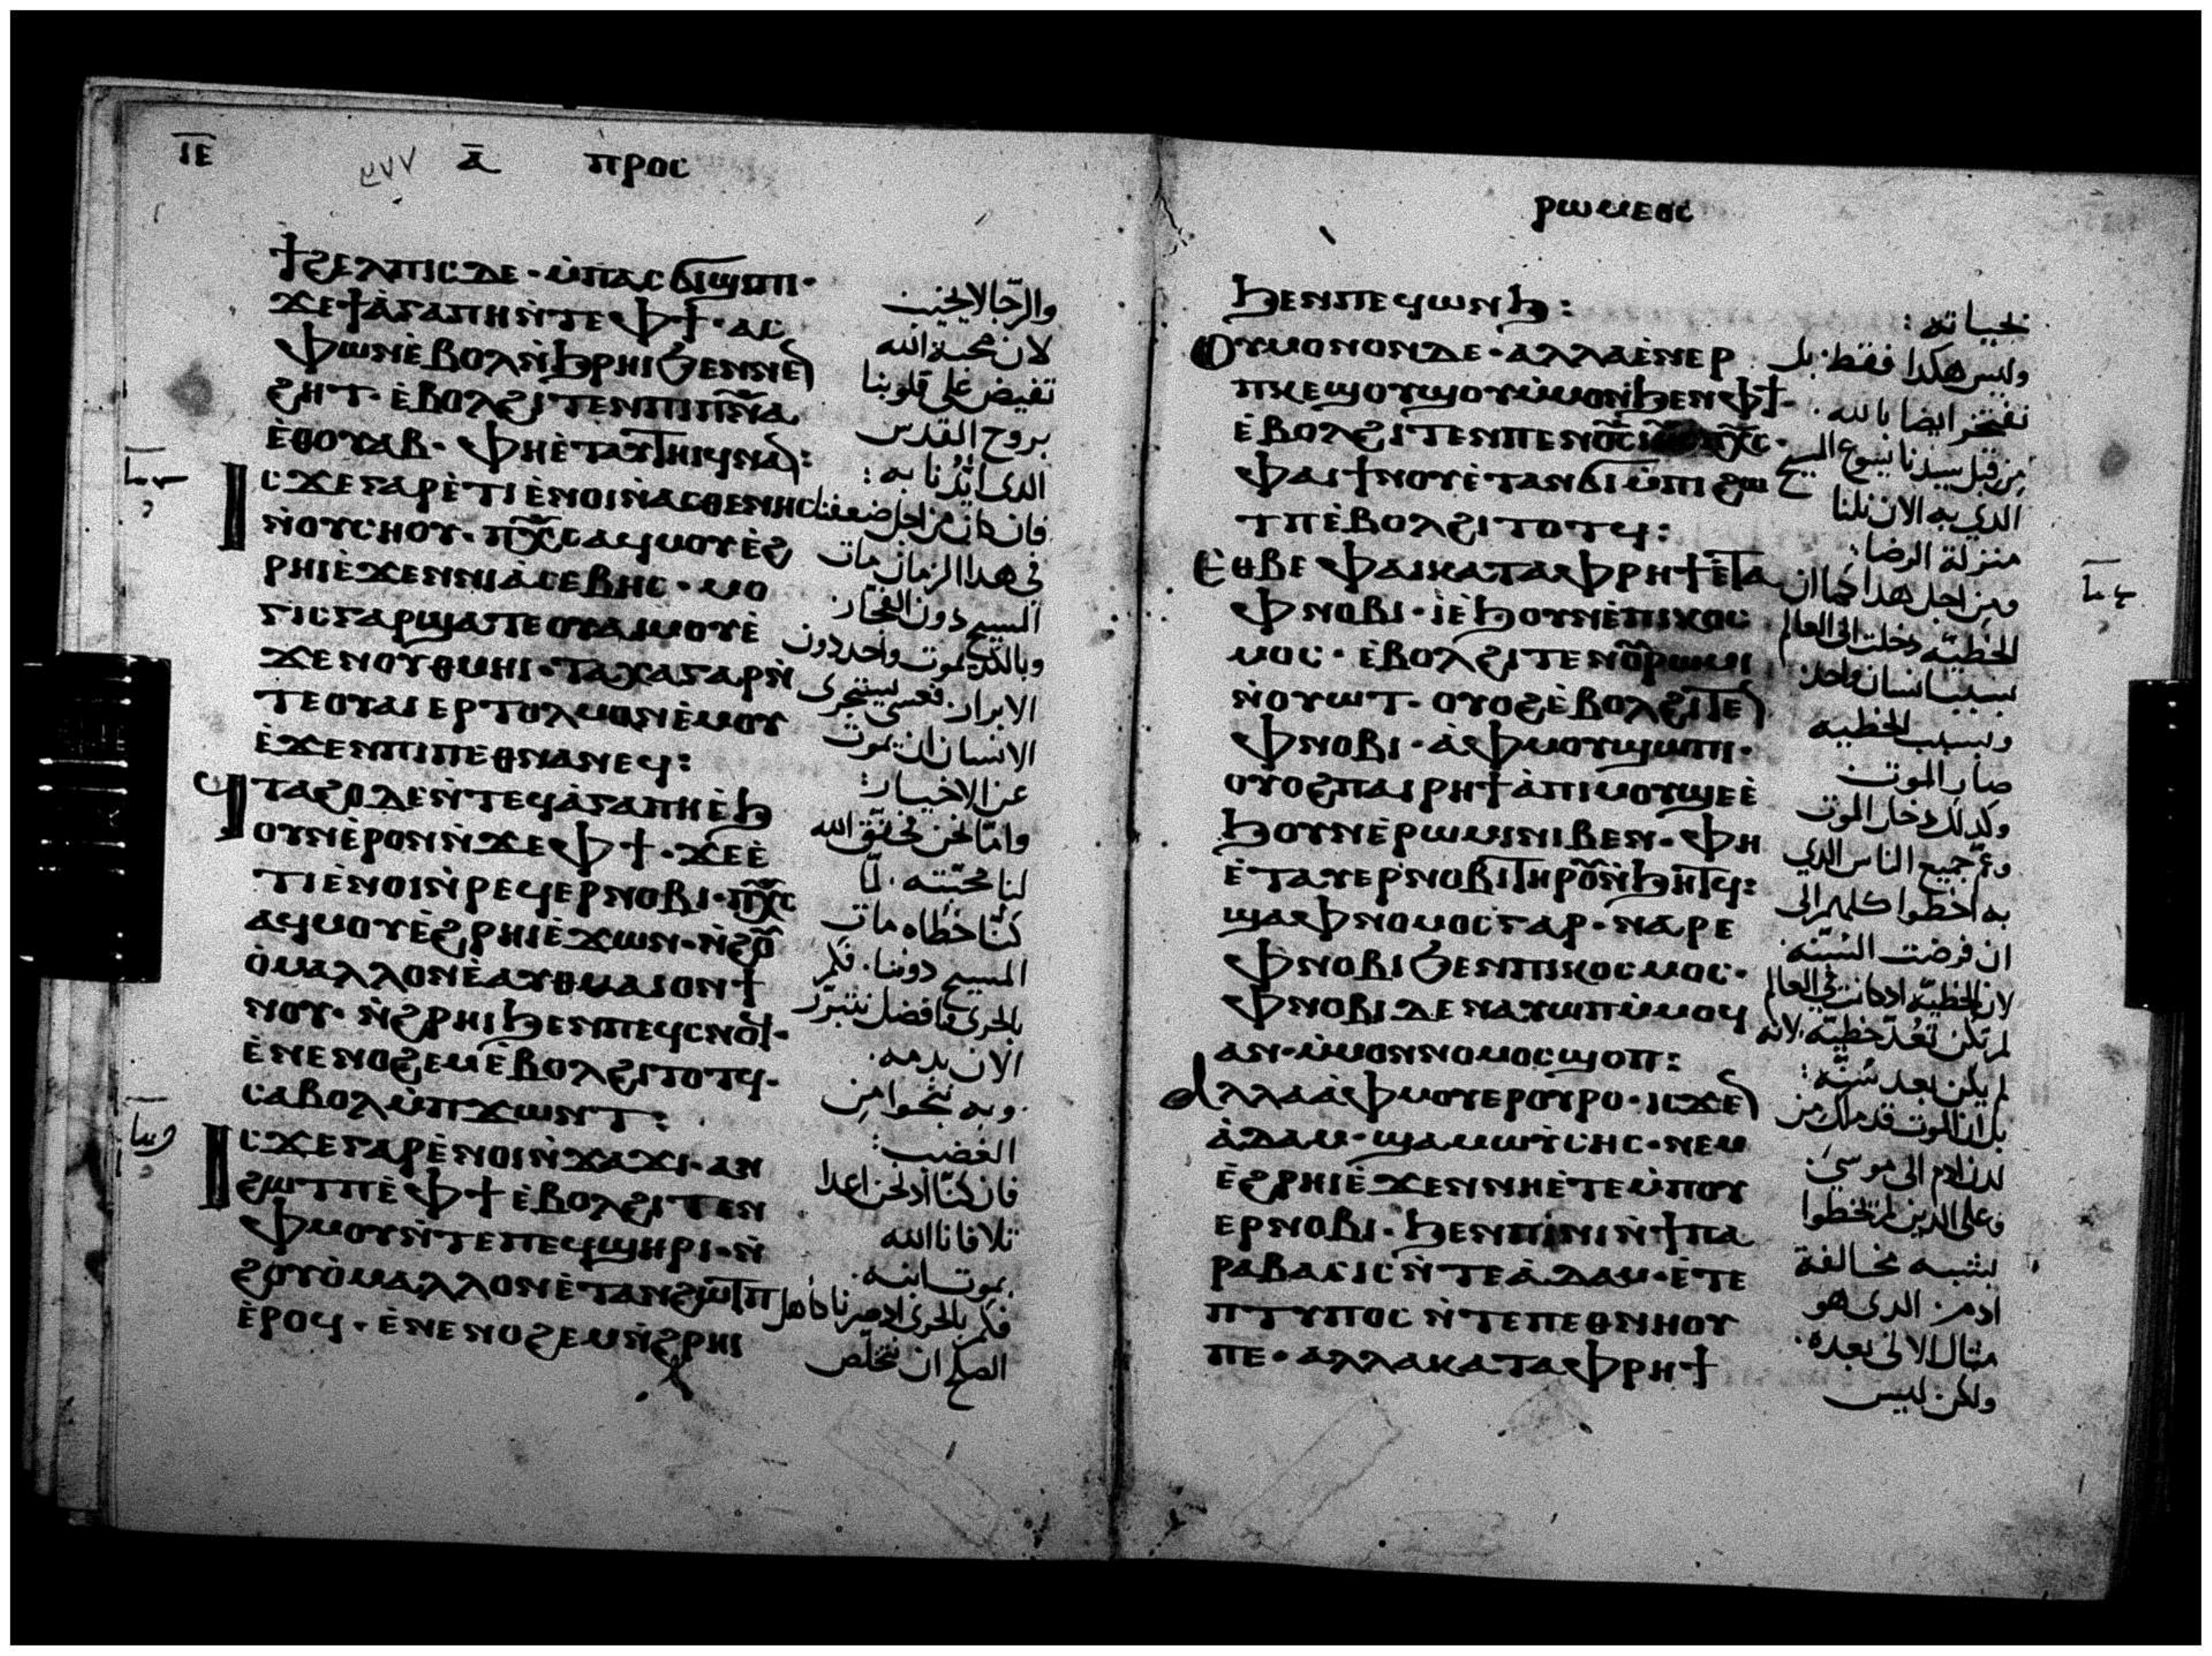 ⲓⲉ ⲁ̅ ⲡⲣⲟⲥ
ϯϩⲉⲗⲡⲓⲥ ⲇⲉ · ⲙ̀ⲡⲁⲥϭⲓϣⲓⲡⲓ ·
ϫⲉ ϯⲁ̀ⲅⲁⲡⲏ ⲛ̀ⲧⲉ ⲫϯ · ⲁⲥ
ⲫⲱⲛ ⲉ̀ⲃⲟⲗ ⲛ̀ϧⲣⲏⲓ ϧⲉⲛ ⲛⲉⲛ
ϩⲏⲧ · ⲉ̀ⲃⲟⲗϩⲓⲧⲉⲛ ⲡⲓⲡⲛ̅ⲁ̅
ⲉ̀ⲑⲟⲩⲁⲃ · ⲫⲏⲉ̀ⲧⲁⲩⲧⲏⲓϥ ⲛⲁⲛ :
ⲓⲥϫⲉ ⲅⲁⲣ ⲉ̀ⲧⲓ ⲉ̀ⲛⲟⲓ ⲛ̀ⲁⲥⲑⲉⲛⲏⲥ
ⲛ̀ⲟⲩⲥⲏⲟⲩ · ⲡⲭ̅ⲥ̅ ⲁϥⲙⲟⲩ ⲉ̀ϩ
ⲣⲏⲓ ⲉ̀ϫⲉⲛ ⲛⲓⲁ̀ⲥⲉⲃⲏⲥ · ⲙⲟ
ⲅⲓⲥ ⲅⲁⲣ ϣⲁⲧⲉ ⲟⲩⲁⲓ ⲙⲟⲩ ⲉ̀
ϫⲉⲛ ⲟⲩⲑⲙⲏⲓ · ⲧⲁⲭⲁ ⲅⲁⲣ ⲛ̀
ⲧⲉ ⲟⲩⲁⲓ ⲉⲣⲧⲟⲗⲙⲟⲛ ⲉ̀ⲙⲟⲩ
ⲉ̀ϫⲉⲛ ⲡⲓⲡⲉⲑⲛⲁⲛⲉϥ :
ϥⲧⲁϩⲟ ⲇⲉ ⲛ̀ⲧⲉϥⲁ̀ⲅⲁⲡⲏ ⲉ̀ϧ
ⲟⲩⲛ ⲉ̀ⲣⲟⲛ ⲛ̀ϫⲉ ⲫϯ · ϫⲉ ⲉ̀
ⲧⲓ ⲉ̀ⲛⲟⲓ ⲛ̀ⲣⲉϥⲉⲣⲛⲟⲃⲓ · ⲡⲭ̅ⲥ̅
ⲁϥⲙⲟⲩ ⲉ̀ϩⲣⲏⲓ ⲉ̀ϫⲱⲛ · ⲛ̀ϩⲟⲩ
ⲟ̀ ⲙⲁⲗⲗⲟⲛ ⲉ̀ⲁⲩⲑⲙⲁⲓⲟⲛ ϯ
ⲛⲟⲩ · ⲛ̀ϩⲣⲏⲓ ϧⲉⲛ ⲡⲉϥⲥⲛⲟϥ ·
ⲉ̀ⲛⲉⲛⲟϩⲉⲙ ⲉ̀ⲃⲟⲗϩⲓⲧⲟⲧϥ ·
ⲥⲁⲃⲟⲗ ⲙ̀ⲡϫⲱⲛⲧ :
ⲓⲥϫⲉ ⲅⲁⲣ ⲉ̀ⲛⲟⲓ ⲛ̀ϫⲁϫⲓ · ⲁⲛ
ϩⲱⲧⲡ ⲉ̀ⲫϯ ⲉ̀ⲃⲟⲗϩⲓⲧⲉⲛ
ⲫⲙⲟⲩ ⲛ̀ⲧⲉ ⲡⲉϥϣⲏⲣⲓ · ⲛ̀
ϩⲟⲩⲟ̀ ⲙⲁⲗⲗⲟⲛ ⲉ̀ⲧⲁⲛϩⲱⲧⲡ
ⲉ̀ⲣⲟϥ · ⲉ̀ⲛⲉⲛⲟϩⲉⲙ ⲛ̀ϩⲣⲏⲓ
والرجا لا يخيب
لان محبة الله
تفيض على قلوبنا
بروح القدس
الدى ايدنا به :
فان كان من اجل ضعفنا
فى هدا الزمان مات
المسيح دون الفجار
وبالكد يموت واحد دون
الابرار · فعسى يستجرى
الانسان ان يموت
عن الاخيار :
واما نحن فحقق الله
لنا محبته · لما
كنا خطاه مات
المسيح دوننا · فكم
بالحرى افضل نتبرر
الان بدمه ·
وبه ننجوا من
الغضب :
فان كنا اد نحن اعدا
تلافانا الله
بموت ابنه ·
فكم بالحرى اد صرنا داهل
الصلح ان نخلص
ⲣⲱⲙⲉⲟⲥ
ϧⲉⲛ ⲡⲉϥⲱⲛϧ :
ⲟⲩⲙⲟⲛⲟⲛ ⲇⲉ · ⲁⲗⲗⲁ ⲉ̀ⲛⲉⲣ
ⲡⲕⲉϣⲟⲩϣⲟⲩ ⲙ̀ⲙⲟⲛ ϧⲉⲛ ⲫϯ ·
ⲉ̀ⲃⲟⲗϩⲓⲧⲉⲛ ⲡⲉⲛⲟ̅ⲥ̅ ⲓⲏ̅ⲥ̅ ⲡⲭ̅ⲥ̅ ·
ⲫⲁⲓ ϯⲛⲟⲩ ⲉ̀ⲧⲁⲛϭⲓ ⲙ̀ⲡⲓϩⲱ
ⲧⲡ ⲉ̀ⲃⲟⲗϩⲓⲧⲟⲧϥ :
ⲉⲑⲃⲉ ⲫⲁⲓ ⲕⲁⲧⲁ ⲫⲣⲏϯ ⲉ̀ⲧⲁ
ⲫⲛⲟⲃⲓ · ⲓ̀ ⲉ̀ϧⲟⲩⲛ ⲉ̀ⲡⲓⲕⲟⲥ
ⲙⲟⲥ · ⲉ̀ⲃⲟⲗϩⲓⲧⲉⲛ ⲟⲩⲣⲱⲙⲓ
ⲛ̀ⲟⲩⲱⲧ · ⲟⲩⲟϩ ⲉ̀ⲃⲟⲗϩⲓⲧⲉⲛ
ⲫⲛⲟⲃⲓ · ⲁ̀ ⲫⲙⲟⲩ ϣⲱⲡⲓ ·
ⲟⲩⲟϩ ⲡⲁⲓⲣⲏϯ ⲁ̀ ⲡⲓⲙⲟⲩ ϣⲉ ⲉ̀
ϧⲟⲩⲛ ⲉ̀ⲣⲱⲙⲓ ⲛⲓⲃⲉⲛ · ⲫⲏ
ⲉ̀ⲧⲁⲩⲉⲣⲛⲟⲃⲓ ⲧⲏⲣⲟⲩ ⲛ̀ϧⲏⲧϥ :
ϣⲁ ⲫⲛⲟⲙⲟⲥ ⲅⲁⲣ · ⲛⲁⲣⲉ
ⲫⲛⲟⲃⲓ ϧⲉⲛ ⲡⲓⲕⲟⲥⲙⲟⲥ ·
ⲫⲛⲟⲃⲓ ⲇⲉ ⲛⲁⲩⲱⲡ ⲙ̀ⲙⲟϥ
ⲁⲛ · ⲙ̀ⲙⲟⲛ ⲛⲟⲙⲟⲥ ϣⲟⲡ :
ⲁⲗⲗⲁ ⲁ̀ ⲫⲙⲟⲩ ⲉⲣⲟⲩⲣⲟ · ⲓⲥϫⲉⲛ
ⲁ̀ⲇⲁⲙ · ϣⲁ ⲙⲱⲩ̀ⲥⲏⲥ · ⲛⲉⲙ
ⲉ̀ϩⲣⲏⲓ ⲉ̀ϫⲉⲛ ⲛⲏⲉ̀ⲧⲉ ⲙ̀ⲡⲟⲩ
ⲉⲣⲛⲟⲃⲓ · ϧⲉⲛ ⲡⲓⲛⲓ ⲛ̀ϯⲡⲁ
ⲣⲁⲃⲁⲥⲓⲥ ⲛ̀ⲧⲉ ⲁ̀ⲇⲁⲙ · ⲉ̀ⲧⲉ
ⲡⲧⲩⲡⲟⲥ ⲛ̀ⲧⲉ ⲡⲉⲑⲛⲏⲟⲩ
ⲡⲉ · ⲁⲗⲗⲁ ⲕⲁⲧⲁ ⲫⲣⲏϯ
بحياته :
وليس هكدا فقط · بل
نفتخر ايضا بالله ·
من قبل سيدنا يسوع المسيح
الدي به الان نلنا
منزلة الرضا :
ومن اجل هدا كما ان
الخطية دخلت الى العالم
بسبب انسان واحد ·
وبسبب الخطيه
صار الموت
وكدلك دخل الموت
وعم جميع الناس الدي
به اخطوا كلهم الى
ان فرضت السنه ·
لان الخطية اد كانت في العالم
لم تكن تعد خطية · لانه
لم يكن بعد سنة :
بل ان الموت قد ملك من
لدن ادم الى موسى
وعلى الدين لم يخطوا
بشبه مخالفة
ادم · الدى هو
مثال الاتى بعده ·
ولكن ليس